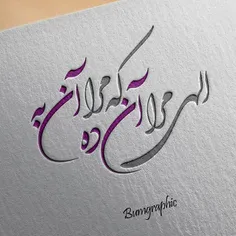 الهی مرا آن ده که مرا آن به
Bumgraphic